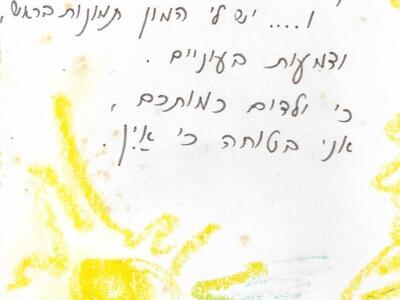 ו.... יש לי המון תמונות בראש,
ודמעות בעיניים.
כי ילדים כמותכם,
אני בטוחה כי אַיִן.